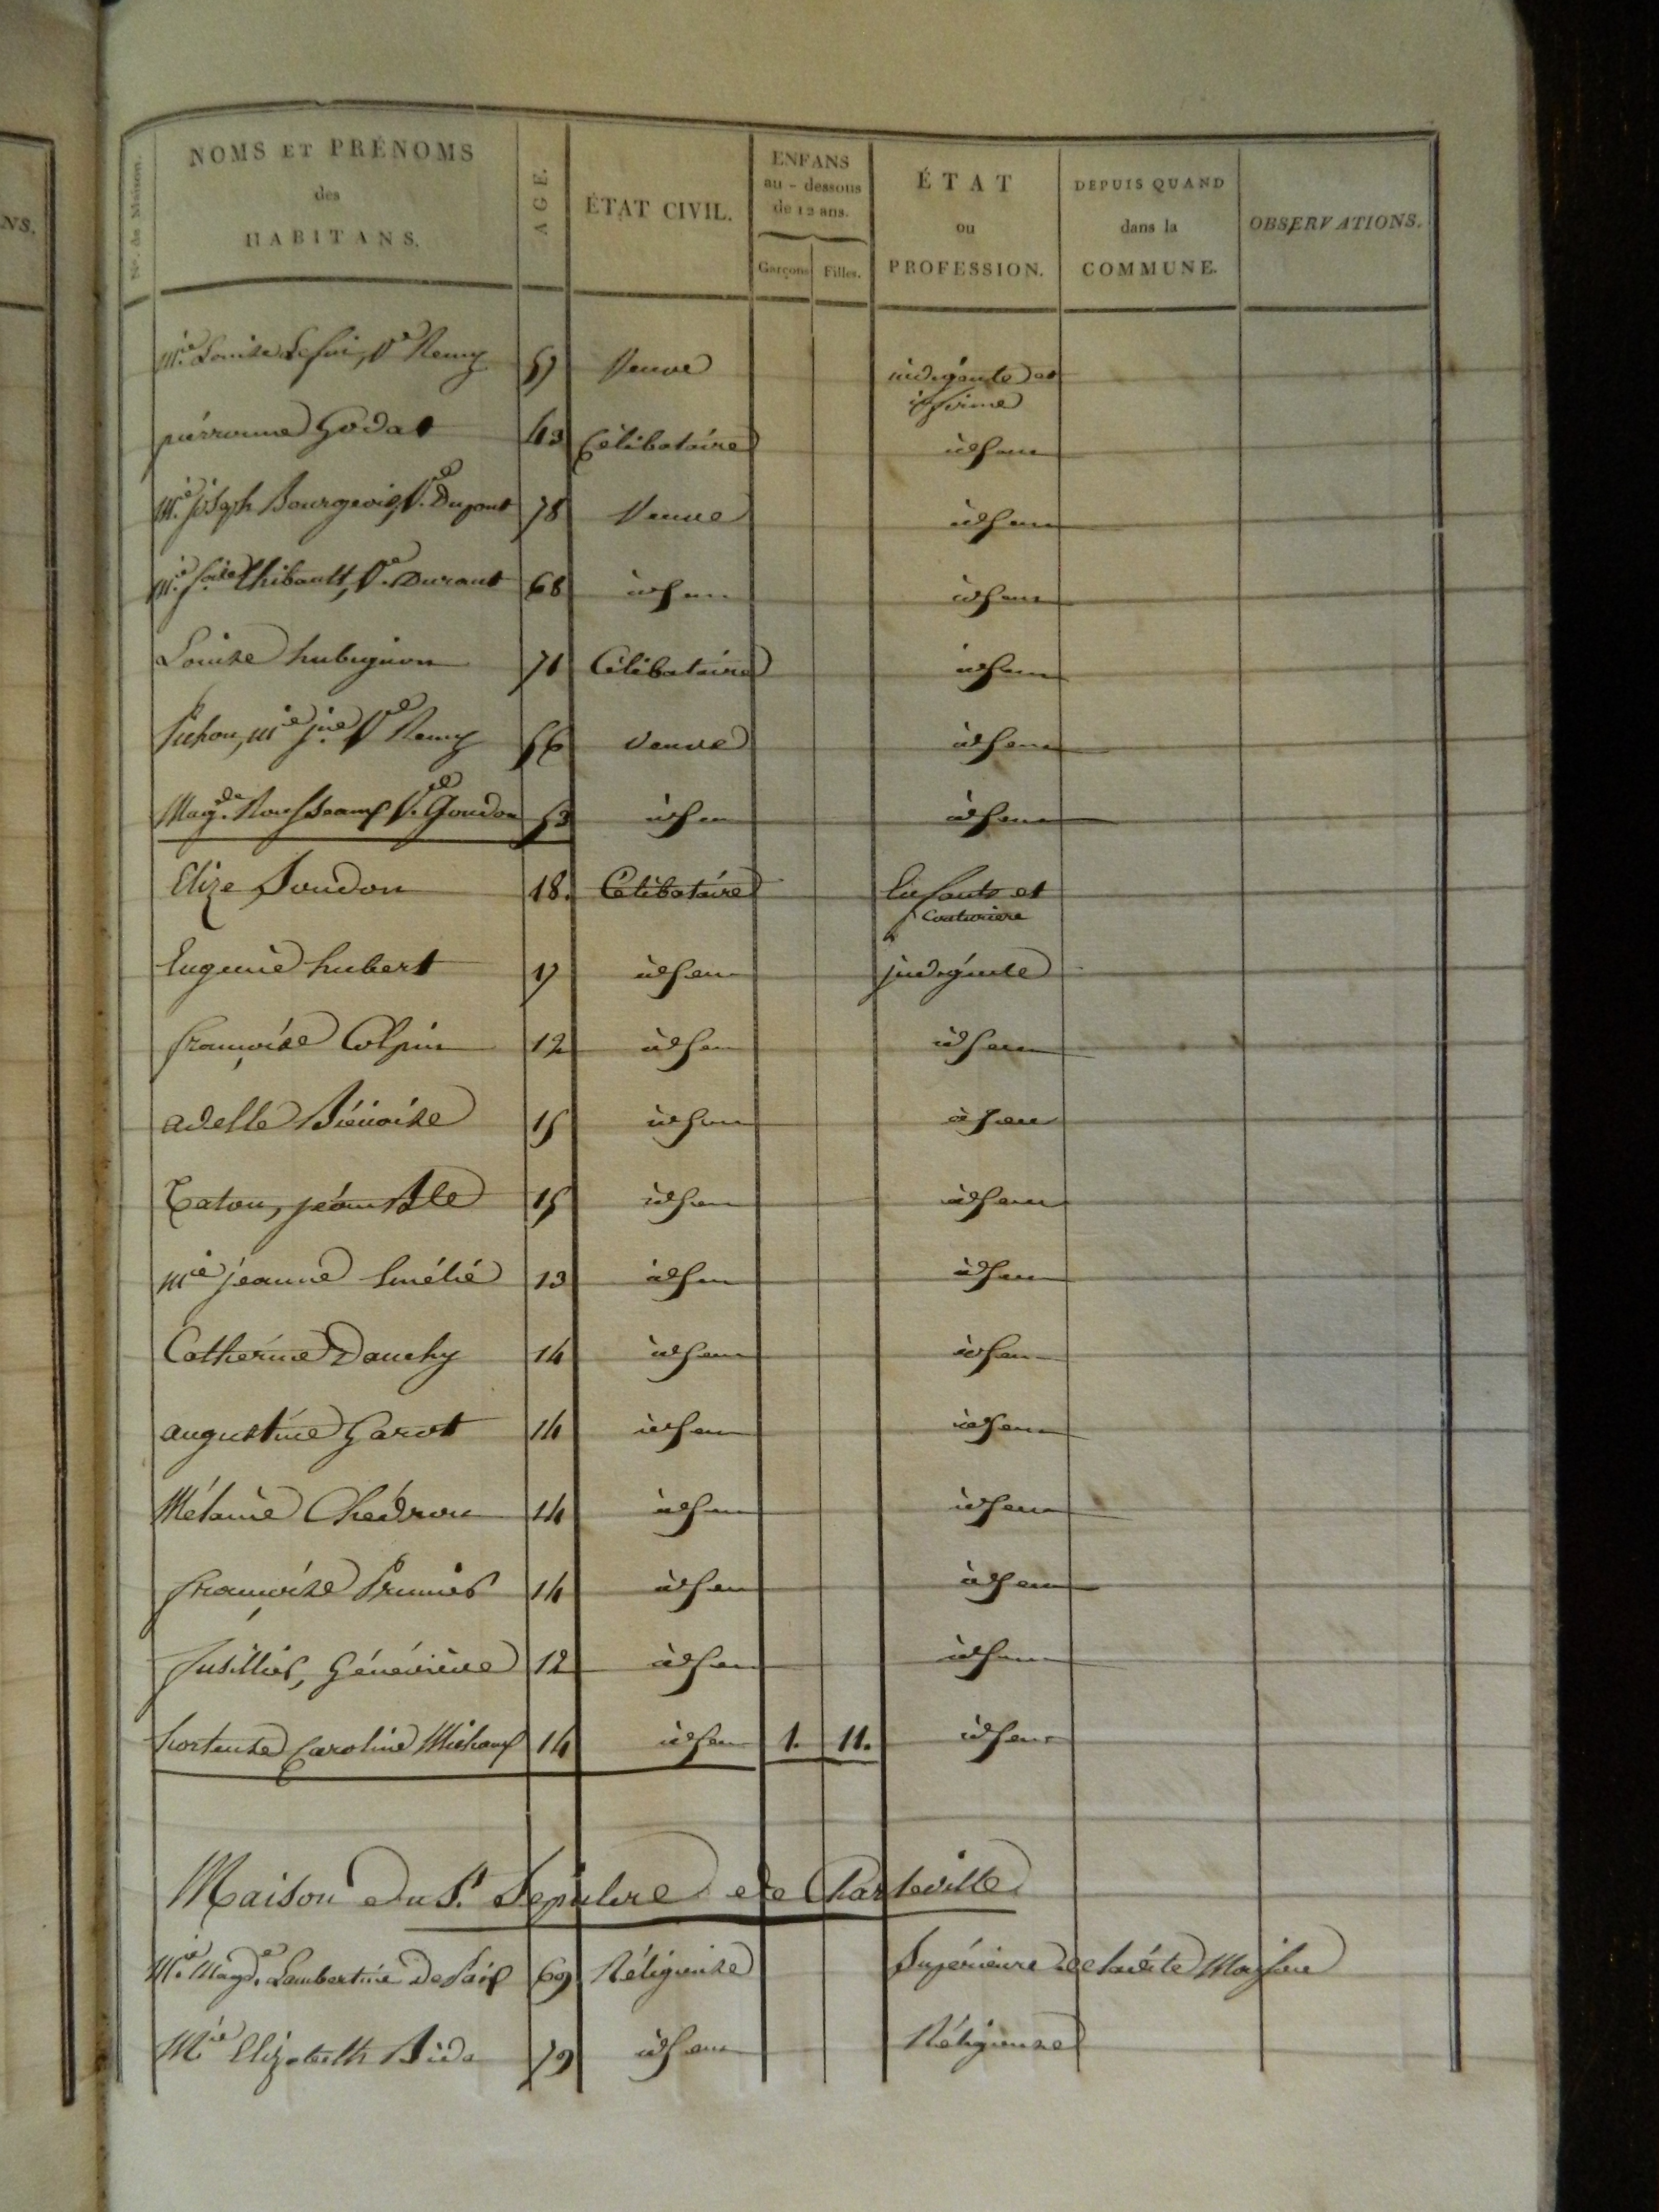 NS.
N.º de Maison.
NOMS ET PRÉNOMS
des
HABITANS.
AGE.
ÉTAT CIVIL.
ENFANS
au-dessous
de 12 ans.
Garçons Filles.
ÉTAT
ou
PROFESSION.
DEPUIS QUAND
dans la
COMMUNE.
OBSERVATIONS.
M.ie Louise V.e Remy 57 Veuve indigente et
infirme
pierronne Godat 43 Célibataire idem
M.ie joseph Bourgeois, V.e Dupont 78 Veuve idem
M.ie Thibault, V.e Durant 68 idem idem
Louise hubignon 71 Célibataire idem
Pichon, M.ie j.ne V.e Remy 56 Veuve idem
Magd. Rousseaux V.e Goudon 53 idem idem
Elize 18. Célibataire Enfants et
Couturière
Eugenie hubert 17 idem indigente
françoise Colpin 12 idem idem
adelle 15 idem idem
15 idem idem
M.ie jeanne 13 idem idem
Catherine Dauchy 14 idem idem
augustine Garot 14 idem idem
Mélanie Chédron 14 idem idem
françoise Prunier 14 idem idem
fusillier, Généviève 12 idem idem
hortense Caroline Michaux 14 idem 1. 11. idem
Maison du S.t Sepulcre de Charleville
M.ie Magd.e Lambertine 69 Réligieuse Supérieure de la dite Maison
M.ie Elizabeth 79 idem Réligieuse